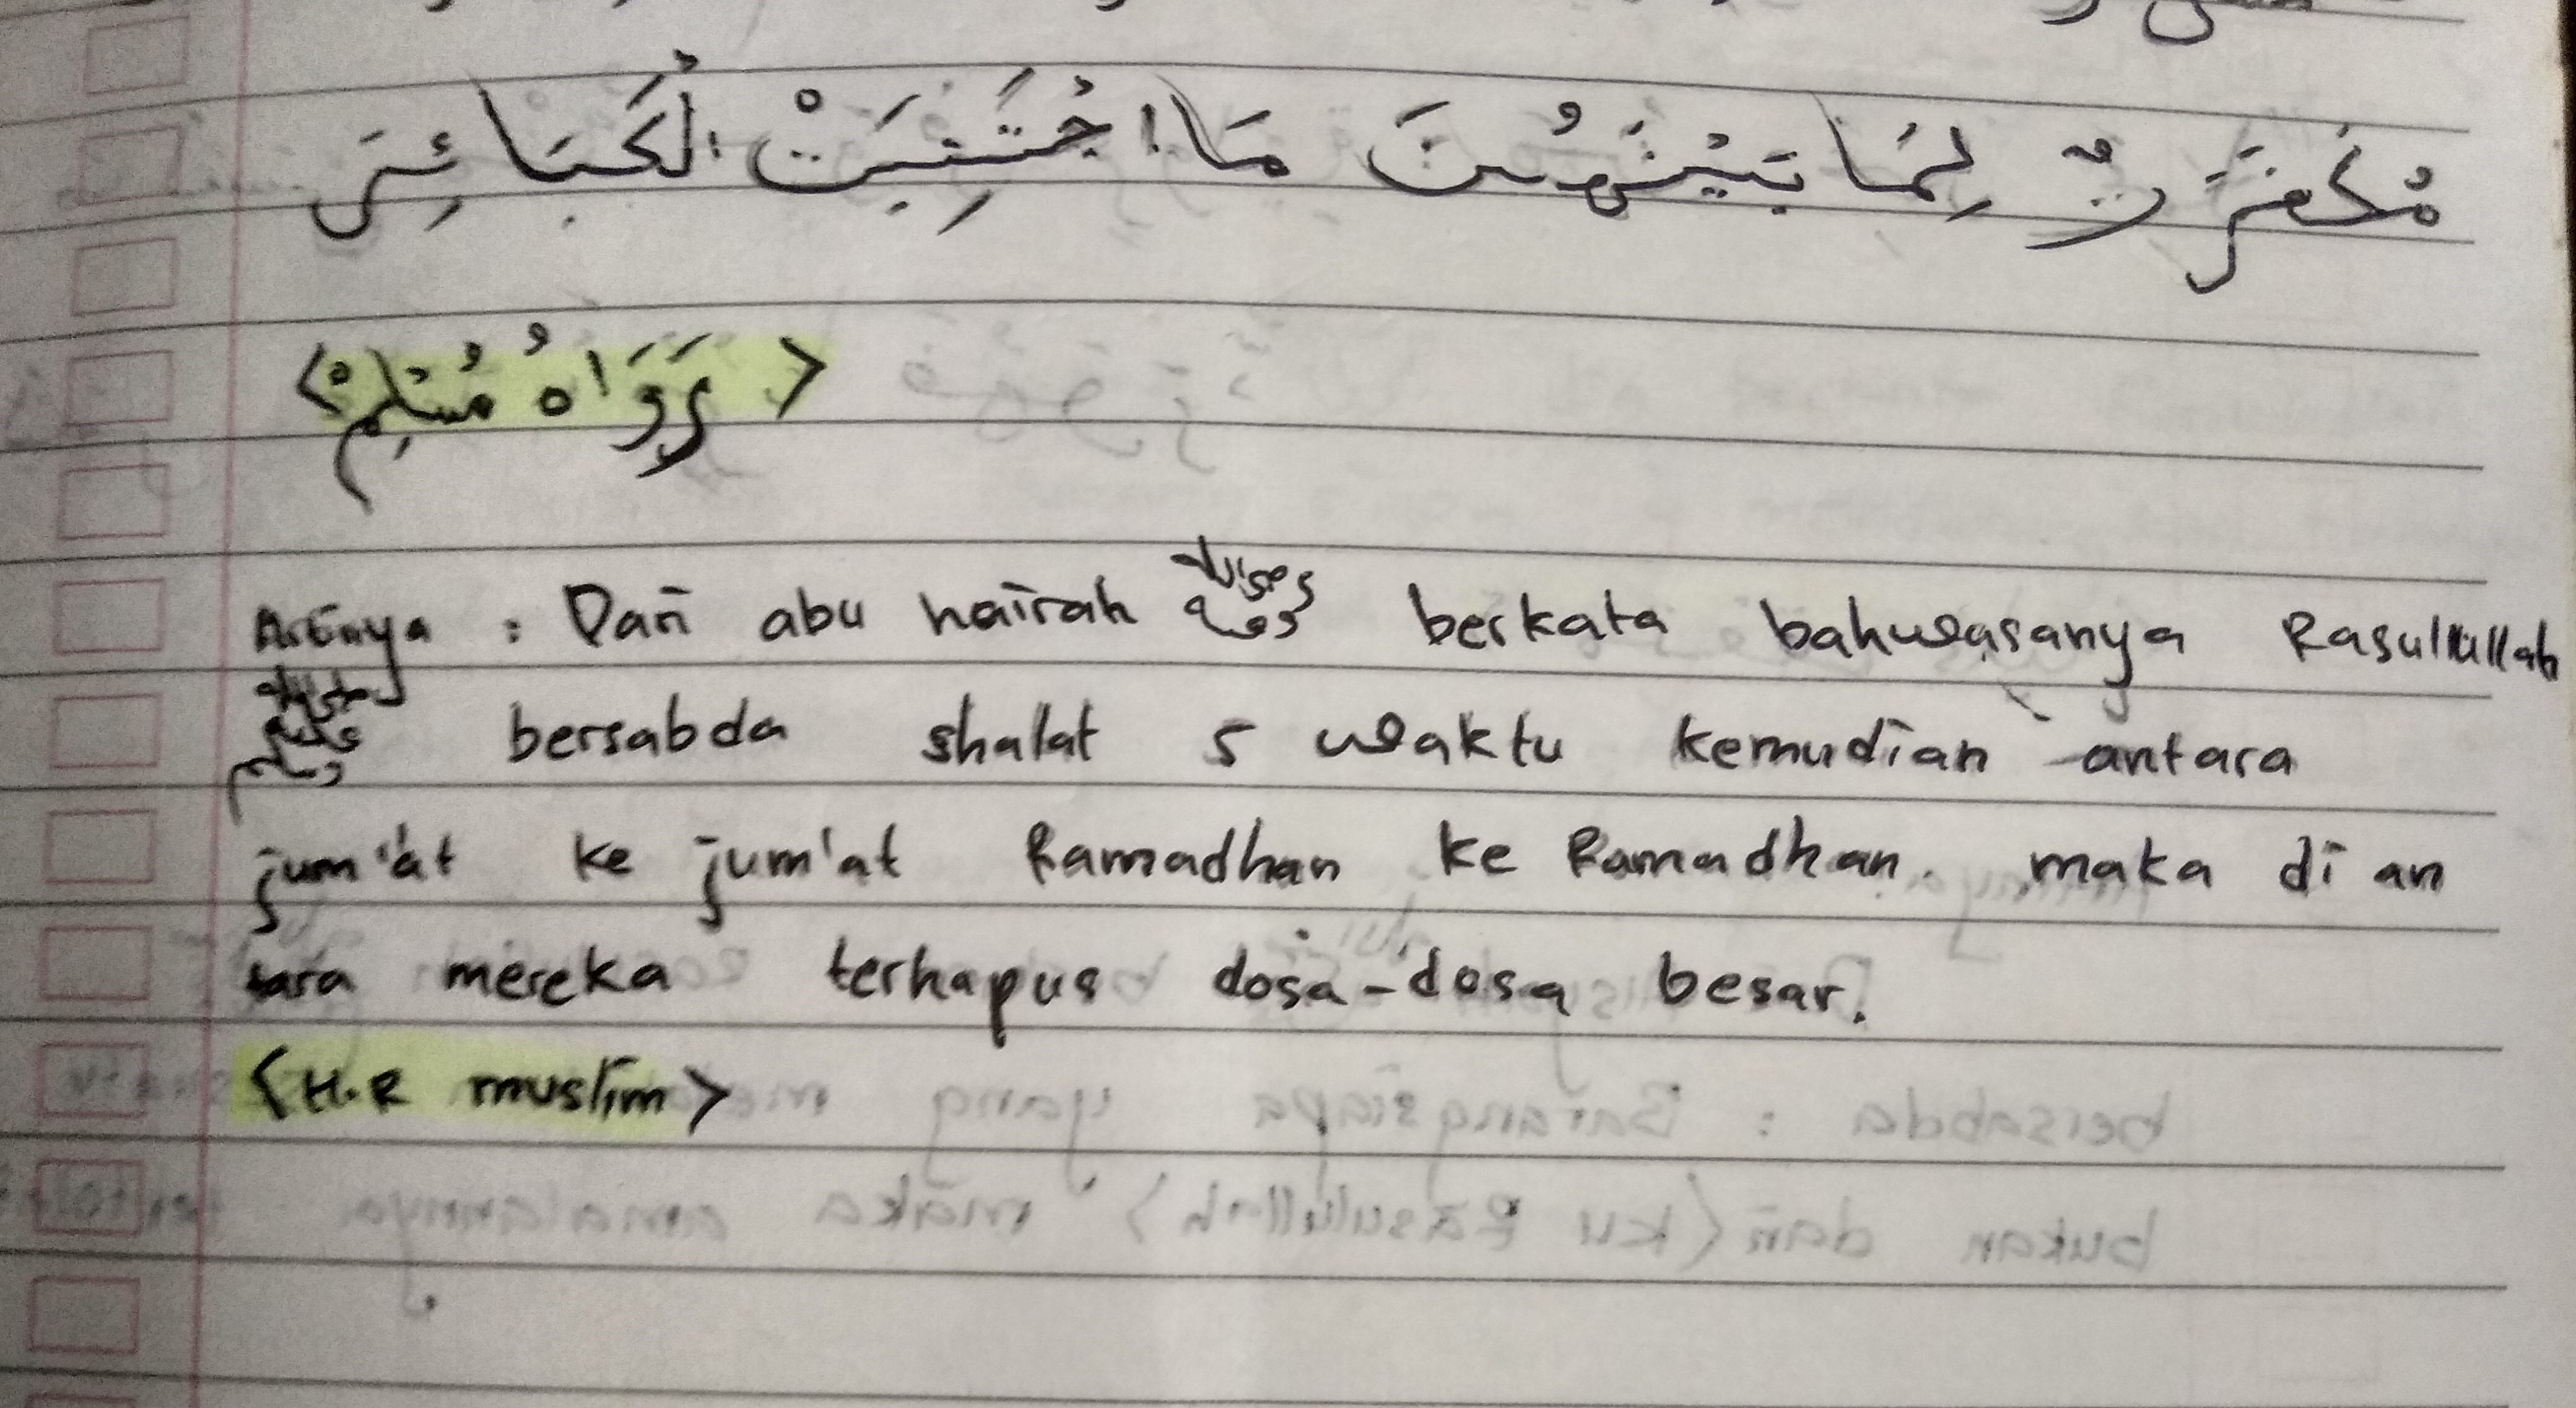 مُكَفِّرَاتٌ لِمَا بَيْنَهُنَّ مَا اجْتَنِبَتْ الْكَبَائِرَ
<رَوَاهُ مُسْلِمْ>
Artinya : Dari abu hairah رضي الله عنه berkata bahwasanya Rasulullah
صلى الله عليه وسلم bersabda shalat 5 waktu kemudian antara
jum'at ke jum'at Ramadhan ke Ramadhan. maka di an
tara mereka terhapus dosa-dosa besar.
<H.R muslim>